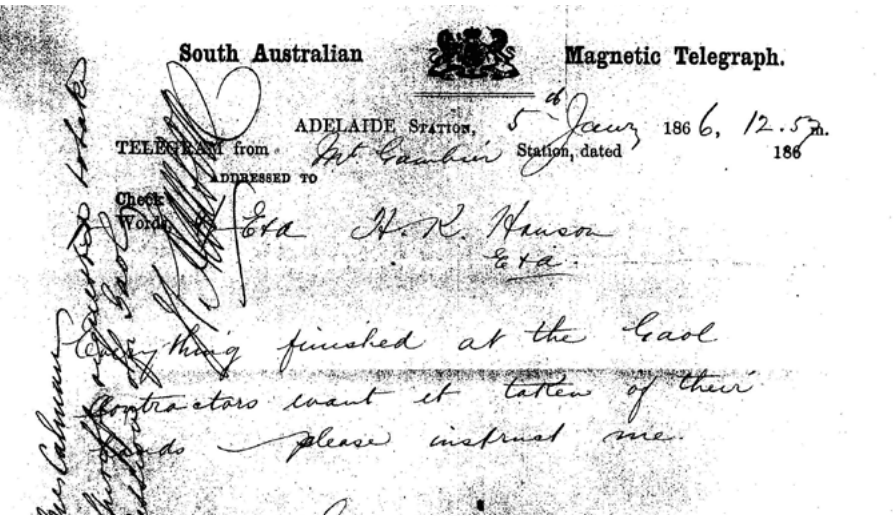 South Australian Magnetic Telegraph.
ADELAIDE STATION, 5th Jany 1866, 12.57 m.
TELEGRAM from Mt Gambier Station, dated 186
ADDRESSED TO
Check
Words,
Exa H. K. Hanson
Exa.
Everything finished at the Gaol
Contractors want it taken of their
hands - please instruct me.
of Gaol